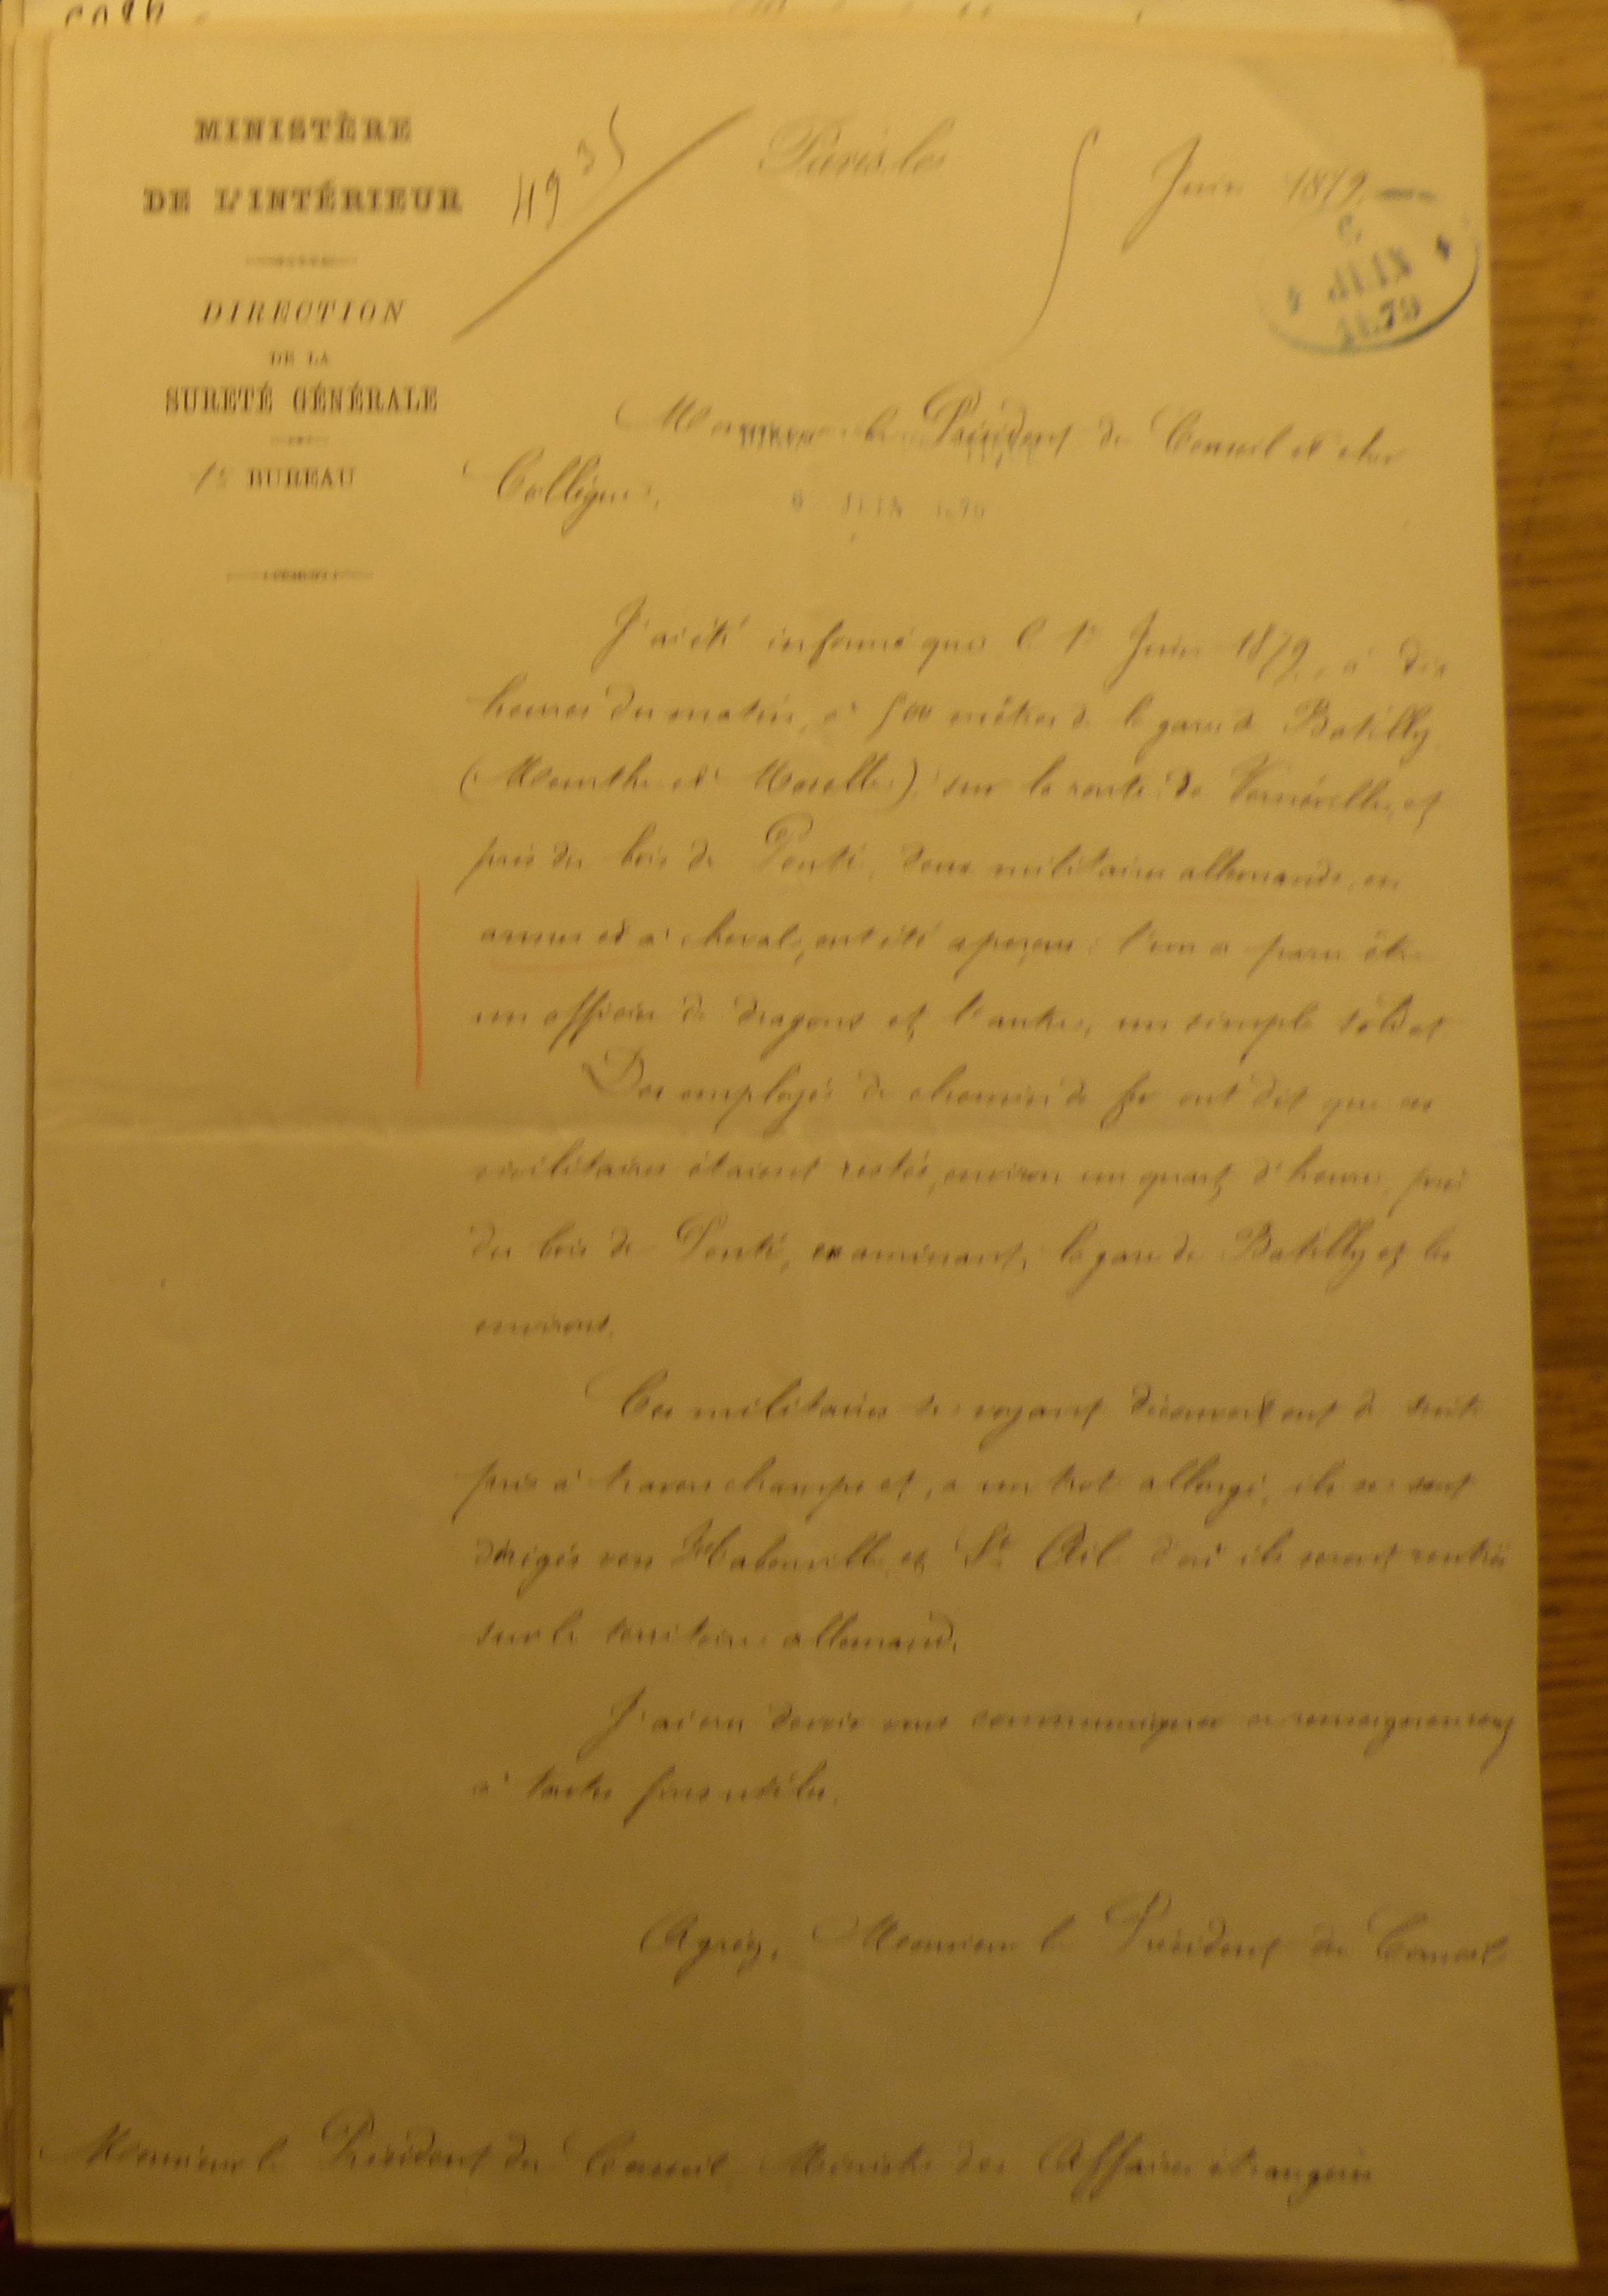 MINISTÈRE
DE L'INTÉRIEUR
DIRECTION
DE LA
SURETÉ GÉNÉRALE
1er BUREAU
4935
Paris, le 5 Juin 1879
JUIN
1879
Monsieur le Président du Conseil et cher
Collègue,
6 JUIN 1879
J'ai été informé que le 1er Juin 1879, à dix
heures du matin, à 500 mètres de la gare de Batilly
(Meurthe et Moselle), sur la route de Vernéville, et
près du bois de Ponté, deux militaires allemands, en
armes et à cheval, ont été aperçus; l'un a paru être
un officier de dragons et l'autre, un simple soldat.
Des employés de chemin de fer ont dit que ces
militaires étaient restés, environ un quart d'heure, près
du bois de Ponté, examinant, la gare de Batilly et les
environs.
Ces militaires se voyant découverts ont de suite
pris à travers champs et, à un trot allongé, ils se sont
dirigés vers Habonville et St Ail d'où ils seront rentrés
sur le territoire allemand.
J'ai cru devoir vous communiquer ce renseignement
à toutes fins utiles.
Agréez, Monsieur le Président du Conseil
Monsieur le Président du Conseil, Ministre des Affaires étrangères